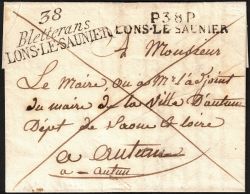 38
Bletterans
LONS-LE-SAUNIER
P38P
LONS-LE-SAUNIER
A Monsieur
Le Maire, ou a Mr l'adjoint
du maire de la Ville D'autun
Dépt de Saone et loire
a autun
a - autun